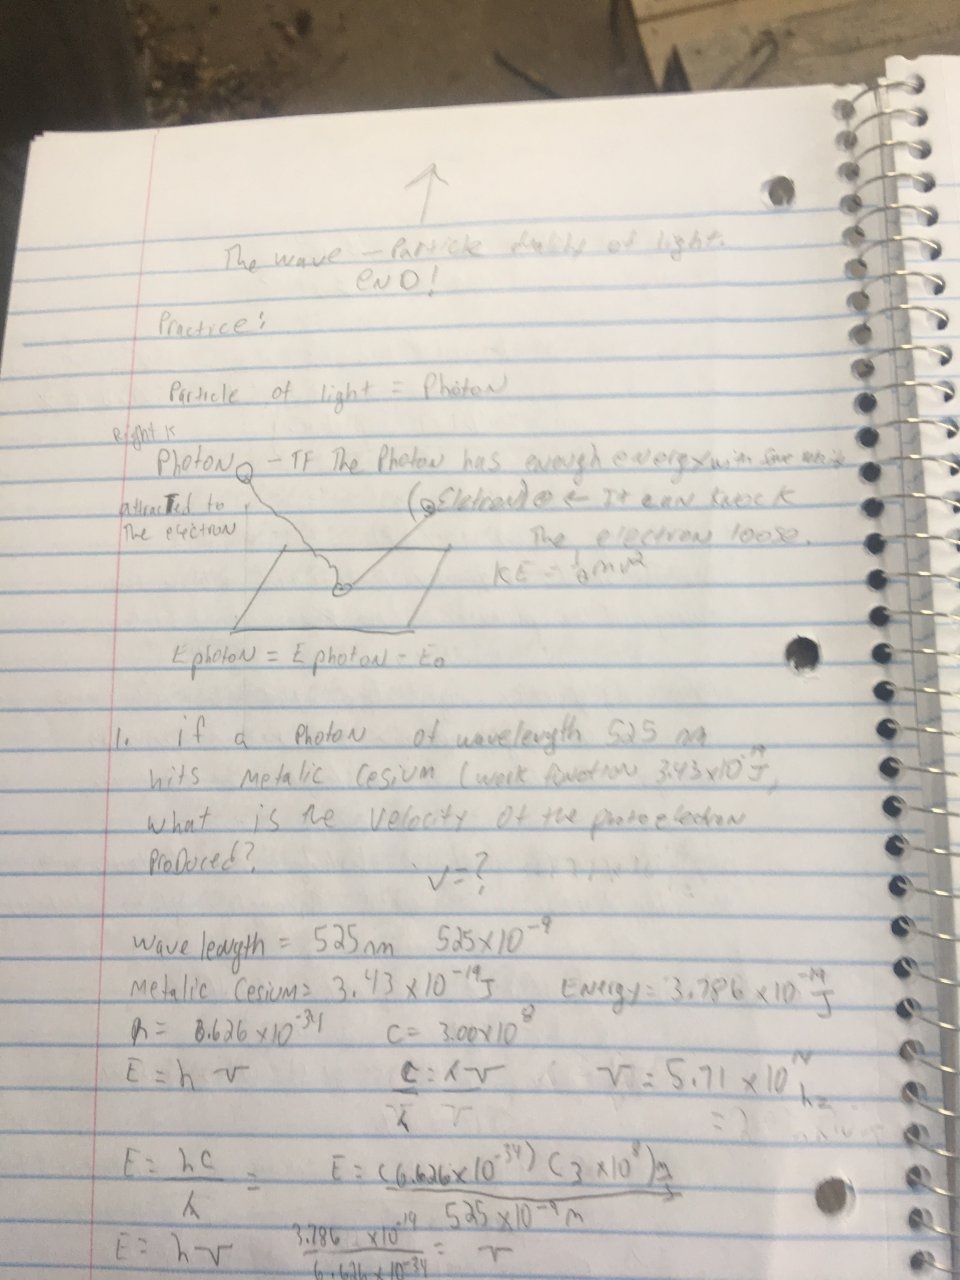 The wave - Particle duality of light.
END!
Practice:
Particle of light = Photon
Right is
Photon - If The Photon has enough energy with
attracted to
The electron
(Eletron) e ← It can knock
The electron loose.
KE = 1/2 mv²
E photon = E photon - Eo
1. if a Photon of wavelength 525 nm
hits Metalic Cesium (work function 3.43x10⁻¹⁹J,
what is the velocity of the photoelectron
Produced?
v=?
wave length = 525nm 525x10⁻⁹
Metalic Cesium = 3.43 x10⁻¹⁹J Energy = 3.786 x10⁻¹⁹J
h = 6.626 x10⁻³⁴ C = 3.00x10⁸
E = h v C = λv v = 5.71 x10¹⁴ hz
λ v
E = hc/λ = E = (6.626x10⁻³⁴)(3 x10⁸)/525 x10⁻⁹m
E = hv 3.786 x10⁻¹⁹/6.626 x10⁻³⁴ = v